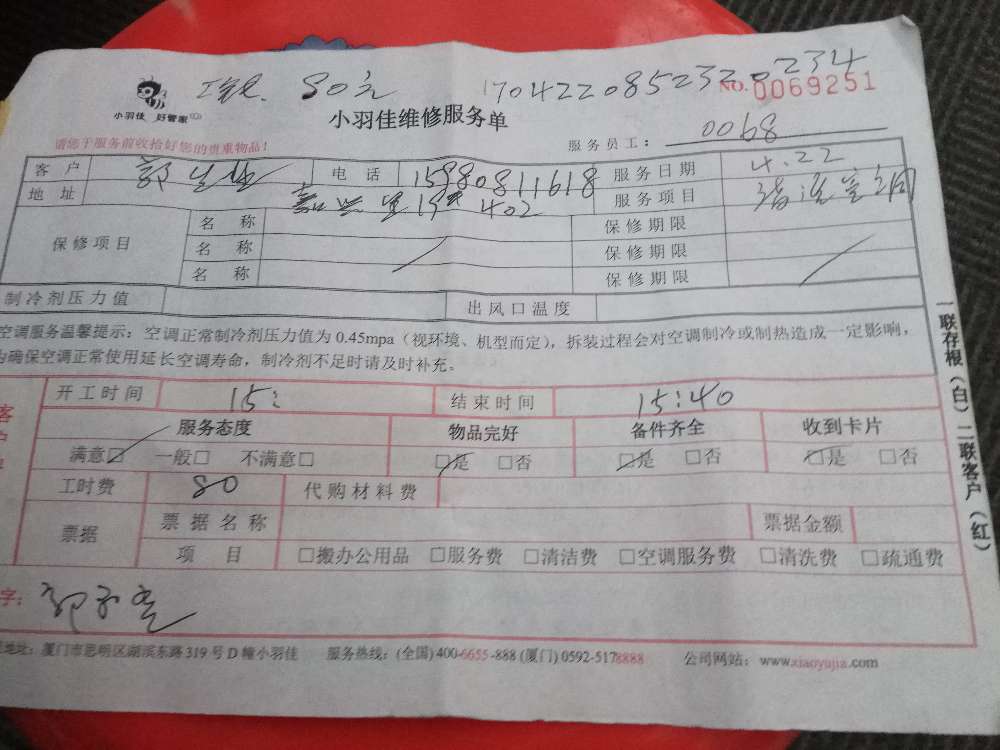 80元 170422085232 0234
NO.0069251
小羽佳 好管家
小羽佳维修服务单
请您于服务前收拾好您的贵重物品！
服务员工： 0068
客户 电话 15980811618 服务日期 4.22
地址 嘉兴里19# 402 服务项目 清洗空调
保修项目 名称 保修期限
名称 保修期限
名称 保修期限
制冷剂压力值 出风口温度
空调服务温馨提示：空调正常制冷剂压力值为 0.45mpa（视环境、机型而定），拆装过程会对空调制冷或制热造成一定影响，
为确保空调正常使用延长空调寿命，制冷剂不足时请及时补充。
开工时间 15: 结束时间 15:40
服务态度 物品完好 备件齐全 收到卡片
满意□ 一般□ 不满意□ □是 □否 □是 □否 □是 □否
工时费 80 代购材料费
票据 票据名称 票据金额
项目 □搬办公用品 □服务费 □清洁费 □空调服务费 □清洗费 □疏通费
字：
地址：厦门市思明区湖滨东路 319 号 D 幢小羽佳 服务热线：(全国) 400-6655-888 (厦门) 0592-5178888 公司网站：www.xiaoyujia.com
一联存根（白）二联客户（红）